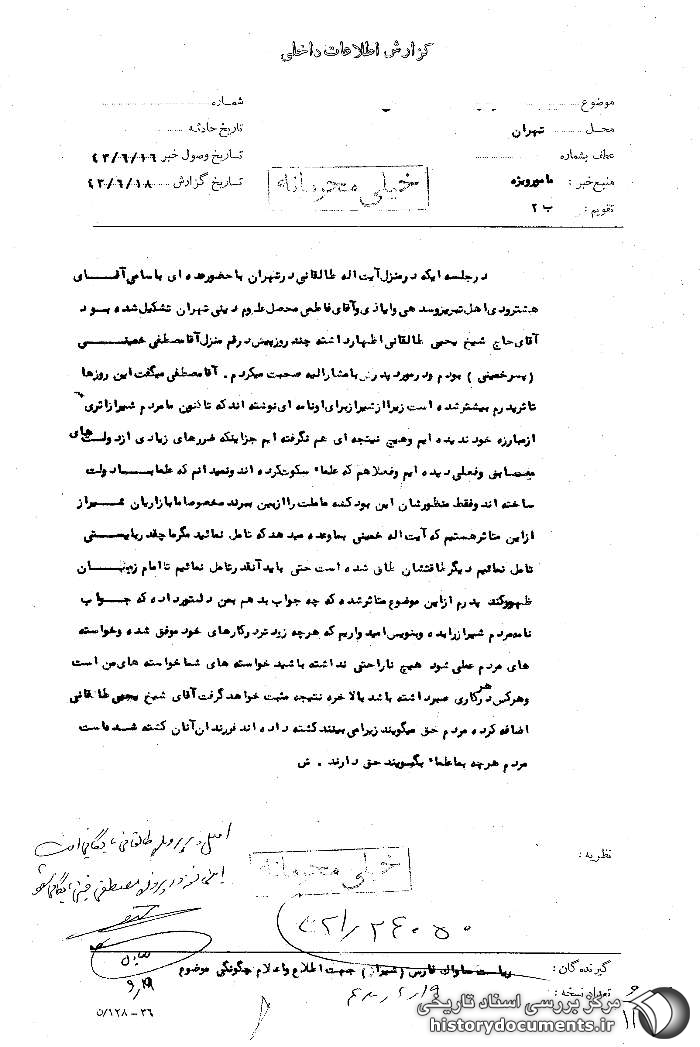 گزارش اطلاعات داخلی
موضوع
شماره
محل تهران
تاریخ حادثه
عطف بشماره
تاریخ وصول خبر ۴۳/۶/۱۶
منبع خبر : مامور ویژه
تاریخ گزارش ۴۳/۶/۱۸
خیلی محرمانه
تقویم : ب ۲
در جلسه ایکه در منزل آیت اله طالقانی در تهران با حضور عده ای باسامی آقـای
هشترودی اهل تبریز و سدهی و ایاذی و آقای فاطمی محصل علوم دینی تهران تشکیل شده بود
آقای حاج شیخ یحیی طالقانی اظهار داشته چند روز پیش در قم منزل آقا مصطفی خمینـی
( پسر خمینی ) بودم و در مورد پدرش با مشارالیه صحبت میکردم . آقا مصطفی میگفت این روزها
تاثر پدرم بیشتر شده است زیرا از شیراز برای او نامه ای نوشته اند که تاکنون ما مردم شیراز اثری
از مبارزه خود ندیده ایم و هیچ نتیجه ای هم نگرفته ایم جز اینکه ضررهای زیادی از دولت های
سابق و فعلی دیده ایم و فعلا هم که علماء سکوت کرده اند و نمیدانم که علما با دولت
ساخته اند و فقط منظورشان این بود که ملت را از بین ببرند مخصوصا ما بازاریان شیراز
از این متاثر هستیم که آیت اله خمینی بما وعده میدهد که تامل نمائید مگر ما چقدر بایستی
تامل نمائیم دیگر طاقتشان طاق شده است حتی باید آنقدر تامل نمائیم تا امام زمـان
ظهور کند پدرم از این موضوع متاثر شده که چه جواب بدهم بمن دستور داده که جـواب
نامه مردم شیراز را بده و بنویس امیدواریم که هرچه زودتر در کارهای خود موفق شده و خواسته
های مردم عملی شود هیچ ناراحتی نداشته باشید خواسته های شما خواسته های من است
و هرکس در هر کاری صبر داشته باشد بالاخره نتیجه مثبت خواهد گرفت آقای شیخ یحیی طالقانی
اضافه کرده مردم حق میگویند زیرا می بینند کشته داده اند فرزندان آنان کشته شده است
مردم هرچه بما علماء بگویند حق دارند . ش
نظریه :
خیلی محرمانه
گیرندگان : ریاست ساواک فارس ( شیراز ) جهت اطلاع و اعلام چگونگی موضوع
تعداد نسخه :
۵/۱۲۸ - ۳۶
مرکز بررسی اسناد تاریخی
historydocuments.ir